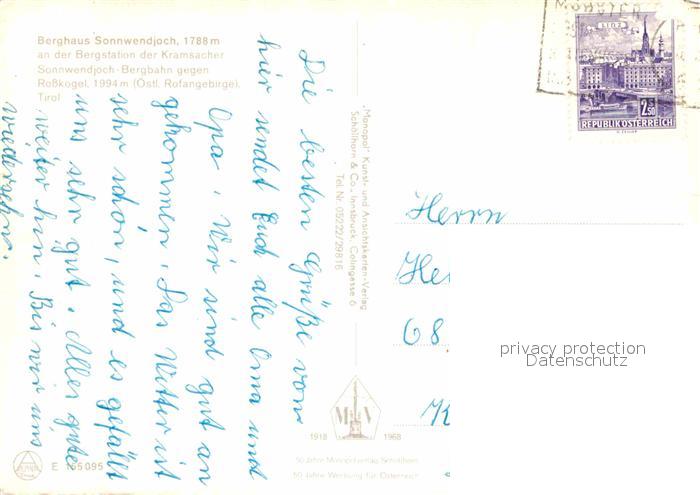 Berghaus Sonnwendjoch, 1788 m
an der Bergstation der Kramsacher
Sonnwendjoch-Bergbahn gegen
Roßkogel, 1994 m (Östl. Rofangebirge),
Tirol
Die besten Grüße von
hier sendet Euch alle Oma und
Opa. Wir sind gut an
gekommen. Das Wetter ist
sehr schön, und es gefällt
uns sehr gut. Alles gute
weiter hin. Bis wir uns
wiedersehn.
„Monopol" Kunst- und Ansichtskarten-Verlag
Schöllhorn & Co., Innsbruck, Colingasse 6
Tel. Nr. 05222/29816
LINZ
2.50
REPUBLIK ÖSTERREICH
MÜNSTER
Herrn
He
68
K
privacy protection
Datenschutz
M V
1918 1968
50 Jahre Monopolverlag Schöllhorn
50 Jahre Werbung für Österreich
E 155095